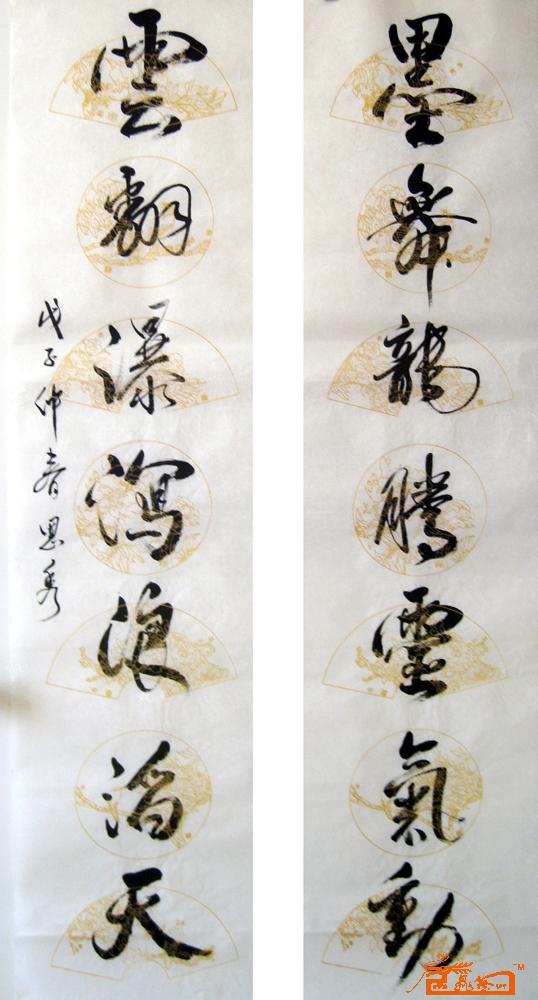 墨舞龍騰靈氣動
雲翻瀑瀉浪滔天
戊子仲春思秀